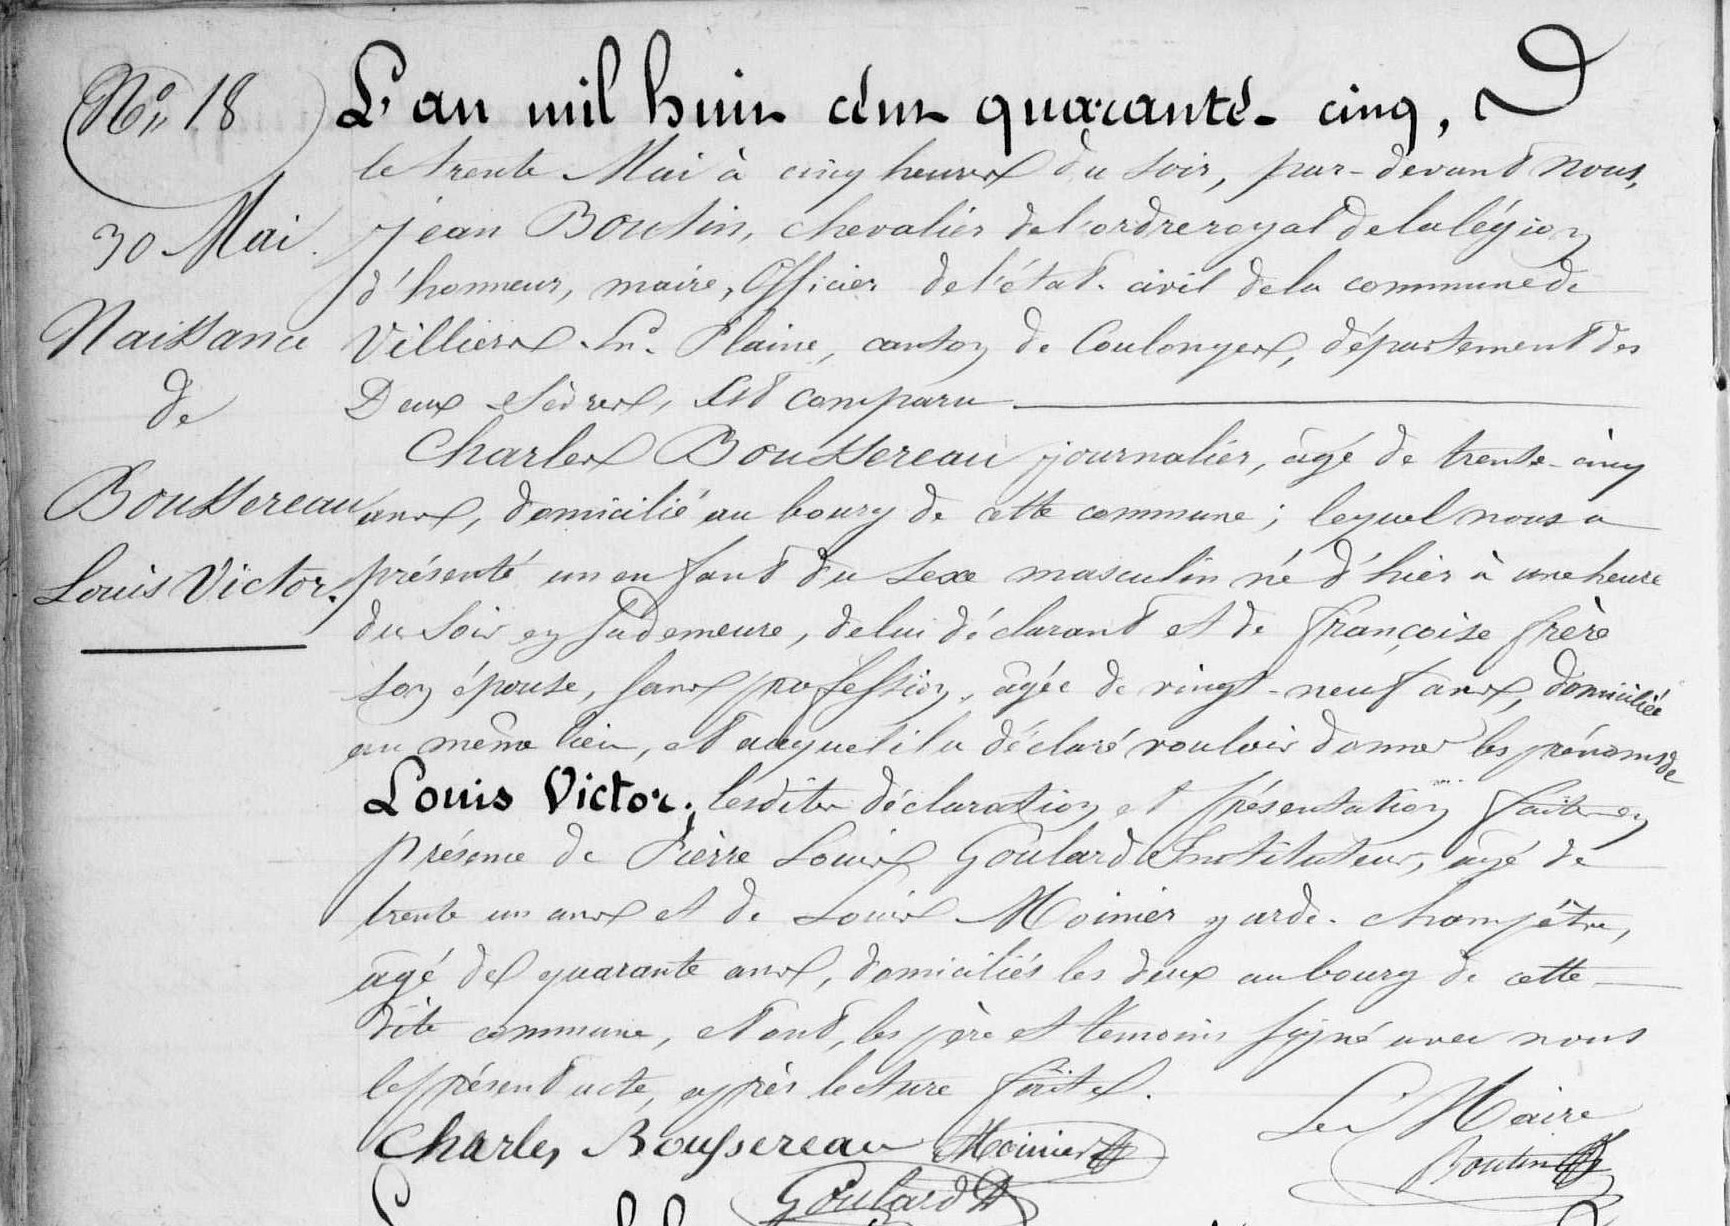 N.° 18
30 Mai.
Naissance
de
Boussereau
Louis Victor.
L'an mil huit cent quarante-cinq,
le trente Mai à cinq heures du soir, par-devant nous,
jean Boutin, chevalier de l'ordre royal de la légion
d'honneur, maire, Officier de l'état-civil de la commune de
Villiers-En-Plaine, canton de Coulonges, département des
Deux Sèvres, Est comparu
Charles Boussereau journalier, âgé de trente-cinq
ans, domicilié au bourg de cette commune; lequel nous a
présenté un enfant du sexe masculin né d'hier à une heure
du soir en sa demeure, de lui déclarant et de françoise frère
son épouse, sans profession, âgée de vingt-neuf ans, domiciliée
au même lieu, et auquel il a déclaré vouloir donner les prénoms de
Louis Victor; lesdites déclaration et présentation faites en
présence de Pierre Louis Goulard Instituteur, âgé de
trente un ans et de Louis Moinier garde-champêtre,
âgé de quarante ans, domiciliés les deux au bourg de cette
dite commune, et ont, les père et temoins signé avec nous
le présent acte, après lecture faite.
Charles Boussereau Moinier
Goulard
Le Maire
Boutin